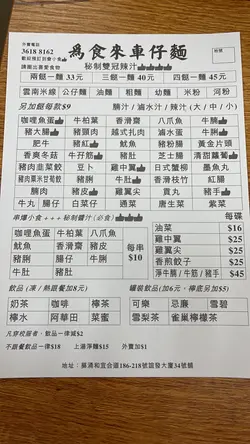 外賣電話
3618 8162
為食來車仔麵
秘制雙冠辣汁
兩餸一麵 33元 三餸一麵 40元 四餸一麵 45元
雲南米線 公仔麵 油麵 粗麵 幼麵 米粉 河粉
另加餸每款$9 腩汁 / 滷水汁 / 辣汁 (大 / 中 / 小)
咖喱魚蛋 牛柏葉 香滑齋 八爪魚 牛腩
豬大腸 豬頸肉 越式扎肉 滷水蛋 牛脷
肥牛 豬紅 魷魚 豬腩 黃金片頭
香爽冬菇 牛孖筋 豬肚 芝士腸 清甜蘿蔔
豬肉韭菜餃 豆卜 雞中翼 日式蟹柳 墨魚丸
豬肉粟米甘筍餃 豬脷 牛肚 香滑枝竹 紅腸
腩肉 豬皮 雞翼尖 貢丸 豬手
牛丸 腸仔 白菜仔 通菜 唐生菜 紫菜
串爆小食 +++秘制醬汁(必食)
咖喱魚蛋 牛柏葉 八爪魚
魷魚 香滑齋 豬皮
豬脷 腸仔 牛脷
牛肚 豬肚
每串
$10
每碟
油菜 $16
雞中翼 $25
雞翼尖 $25
香煎餃子 $25
淨牛腩 / 牛筋 / 豬手 $45
飲品 (凍 / 熱跟餐加8元) 罐裝飲品(加6元,檸底另加$5)
奶茶 咖啡 檸茶 可樂 忌廉 雪碧
檸水 阿華田 菜蜜 雪梨茶 雀巢檸檬茶
凡穿校服者,飲品一律減$2
不跟餐飲品一律$18 上湯淨麵$15 外賣加$1
地址:葵涌和宜合道186-218號誼發大廈34號舖